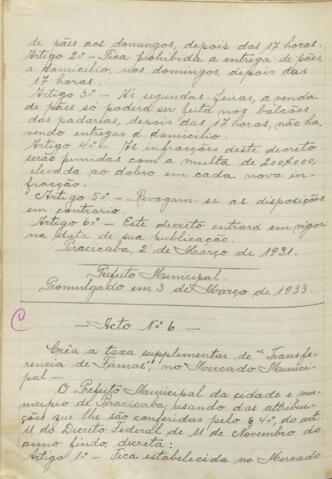 de pães aos domingos, depois das 17 horas.
Artigo 2º - Fica prohibida a entrega de pães
a domicilio, nos domingos, depois das
17 horas.
Artigo 3º - Ás segundas-feiras, a venda
de pães só poderá ser feita nos balcões
das padarias, depois das 17 horas, não ha-
vendo entregas a domicilio.
Artigo 4º - As infracções deste decreto
serão punidas com a multa de 200$000,
elevada ao dobro em cada nova in-
fracção.
Artigo 5º - Revogam-se as disposições
em contrario.
Artigo 6º - Este decreto entrará em vigor
na data de sua publicação.
Piracicaba, 2 de Março de 1931.
Prefeito Municipal.
Promulgado em 3 de Março de 1933.
C
- Acto Nº 6 -
Crêa a taxa supplementar de "Transfe-
rencia de Firmas", no Mercado Munici-
pal -
O Prefeito Municipal da cidade e mu-
nicipio de Piracicaba, usando das attribui-
ções que lhe são conferidas pelo § 4º, do art.
11 do Decreto Federal de 11 de Novembro do
anno findo, decreta:
Artigo 1º - Fica estabelecida no Mercado